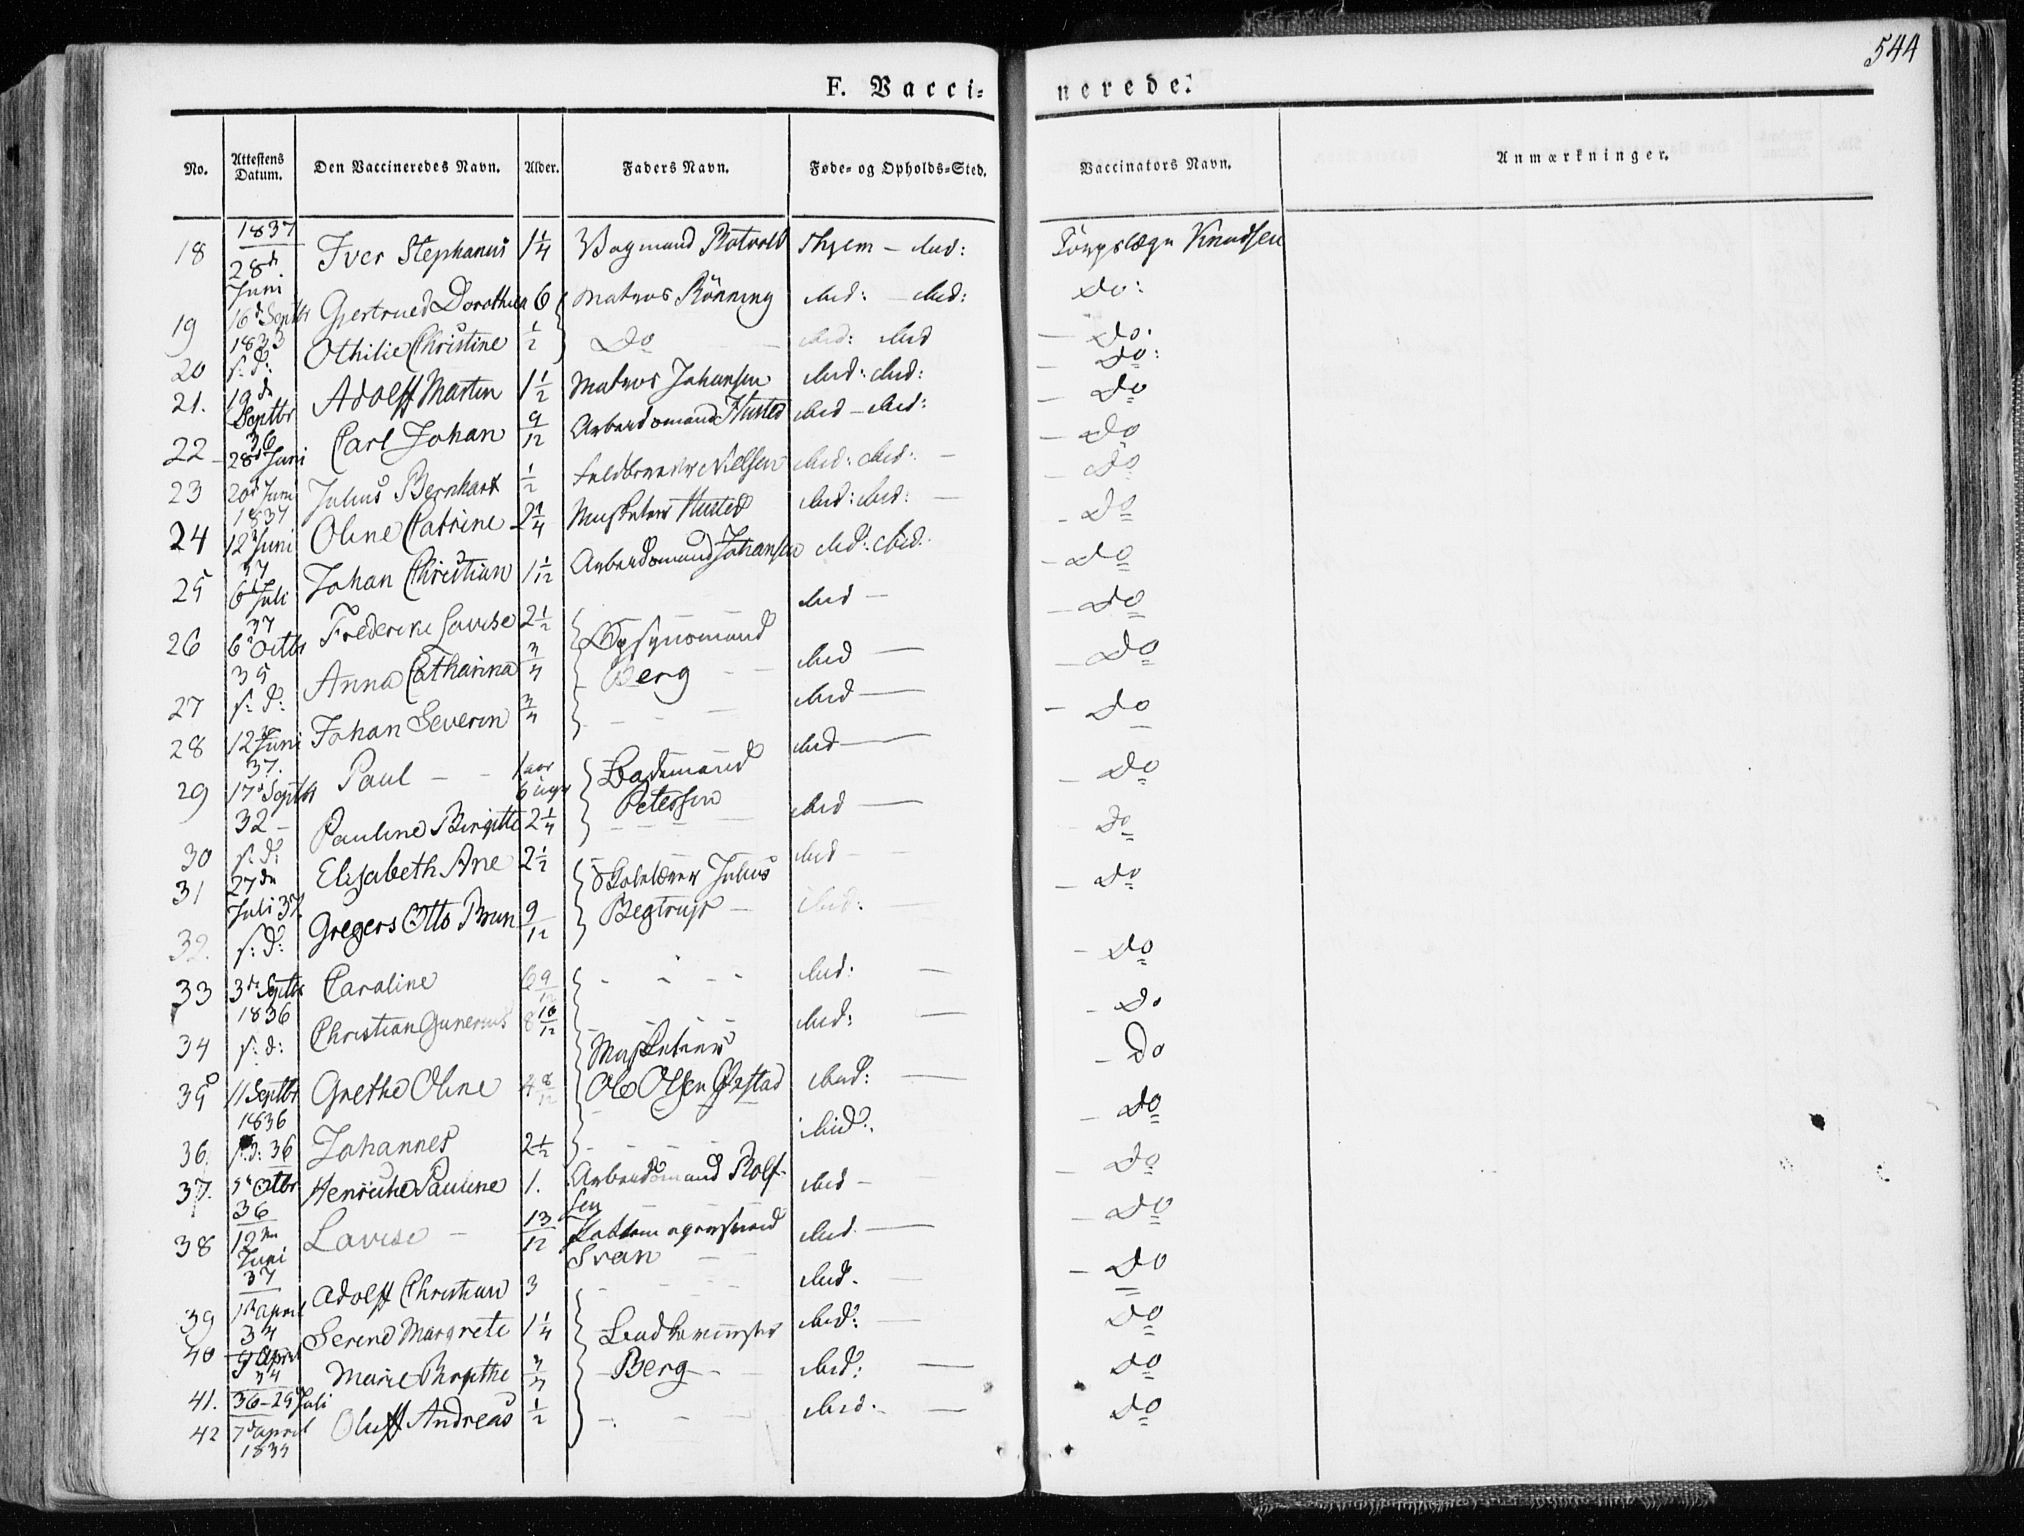 544
F. Vacci-
nerede:
No.
Attestens Datum.
Den Vaccineredes Navn.
Alder.
Faders Navn.
Føde- og Opholds-Sted.
Vaccinators Navn.
Anmærkninger.
18 1837 28d Juni Iver Stephanus 1 1/4 Thjem - ibid: Knudsen
19 16d Septbr 1833 Gjertrued Dorothea 6 Matros Rönning ibid: - ibid: Do:
20 s: d: Othilie Christine 1/2 Do ibid: ibid - Do:
21. 19de Septbr 36 Adolff Marten 1 1/2 Matros Johansen ibid: ibid: - Do:
22 28d Juni Carl Johan 9/12 Arbeidsmand Husted ibid - ibid: - Do
23 20d Juni 1837 Julius Bernhart 1/2 Nielsen ibid: ibid: - Do
24 12d Juni 37 Oline Catrine 2 1/4 Musketeer Husted ibid: ibid: - Do
25 6d Juli 37 Johan Christian 1 1/12 Arbeidsmand Johansen ibid: ibid: - Do
26 6d Octbr 35 Frederike Lovise 2 1/2 ibid - Do
27 s: d: Anna Catharina 3/4 Berg ibid - Do
28 12te Juni 37. Johan Severin 3/4 ibid - Do
29 17d Septbr 32 - Paul - - 1 aar 6 uger ibid - Do
30 s: d: Pauline Birgitte 2 1/4 Petersen ibid - Do
31 27de Juli 37 Elisabeth Ane 2 1/2 Skolelærer Julius ibid - Do
32. s: d: Gregers Otto Brun 9/12 Begtrup - ibid: - Do
33 3de Septbr 1836 Caroline 6 9/12 ibid: - Do
34 s: d: Christian Gunerius 8 10/12 Musketeer ibid: - Do
35 11 Septbr 1836 Grethe Oline 4 8/12 Ole Olsen ibid: - Do
36. s: d: 36 Johannes 2 1/2 ibid: - Do
37. 5d Octbr 36 Henriche Pauline 1. Arbeidsmand Rolfsen ibid - Do
38 12te Juni 37 Lovise - 13/12 Svan ibid - Do
39 1de April 34 Adolff Christian 3 ibid. - Do
40 9d April 34 Serine Margrete 1 1/4 ibid: - Do
41. 36 - 29 Juli Marie 3/4 Berg - ibid: - Do
42 7d April 1834 Oluff Andreas 1/2 ibid. - Do